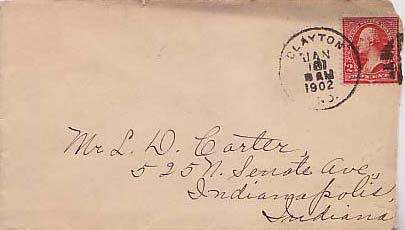 CLAYTON
JAN
8 AM
1902
Mr. L. D. Carter,
525 N. Senate Ave.,
Indianapolis,
Indiana